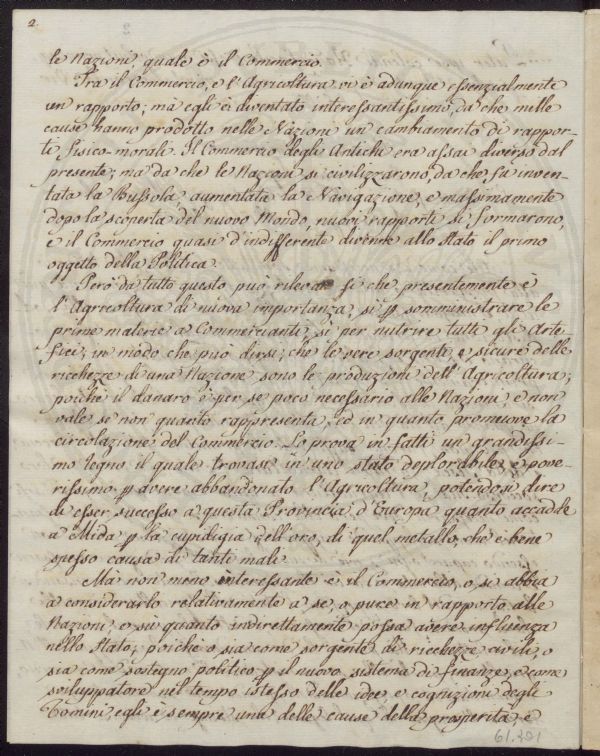 2.
le Nazioni, quale è il Commercio.
Tra il Commercio, e l'Agricoltura vi è adunque essenzialmente
un rapporto; ma egli è diventato interessantissimo, da che mille
cause hanno prodotto nelle Nazioni un cambiamento di rappor-
ti fisico-morali. Il Commercio degli Antichi era assai diverso dal
presente; ma da che le Nazioni si civilizzarono, da che fu inven-
tata la Bussola, aumentata la Navigazione, e massimamente
dopo la scoperta del nuovo Mondo, nuovi rapporti si formarono,
e il Commercio quasi d'indifferente divenne allo Stato il primo
oggetto della Politica.
Però da tutto questo può rilevarsi che presentemente è
l'Agricoltura di nuova importanza, sì p somministrare le
prime materie a Commercianti, sì per nutrire tutti gli Arte
fici, in modo che può dirsi, che le vere sorgenti, e sicure delle
richezze di una Nazione sono le produzioni dell'Agricoltura;
poichè il danaro è per se poco necessario alle Nazioni e non
vale se non quanto rappresenta, ed in quanto promuove la
circolazione del Commercio. Lo prova in fatti un grandissi-
mo Regno il quale trovasi in uno stato deplorabile, e pove-
rissimo p avere abbandonato l'Agricoltura, potendosi dire
di esser successo a questa Provincia d'Europa quanto accadde
a Mida p la cupidigia dell'oro, di quel metallo, che è bene
spesso causa di tanti mali.
Ma non meno interessante è il Commercio, o si abbia
a considerarlo relativamente a se, o pure in rapporto alle
Nazioni, o sù quanto indirettamente possa avere influenza
nello Stato; poichè o sia come sorgente di richezze civili, o
sia come sostegno politico p il nuovo sistema di finanze, e come
sviluppatore nel tempo istesso delle idee e cognizioni degli
Uomini, egli è sempre una delle cause della prosperità, e
61.301